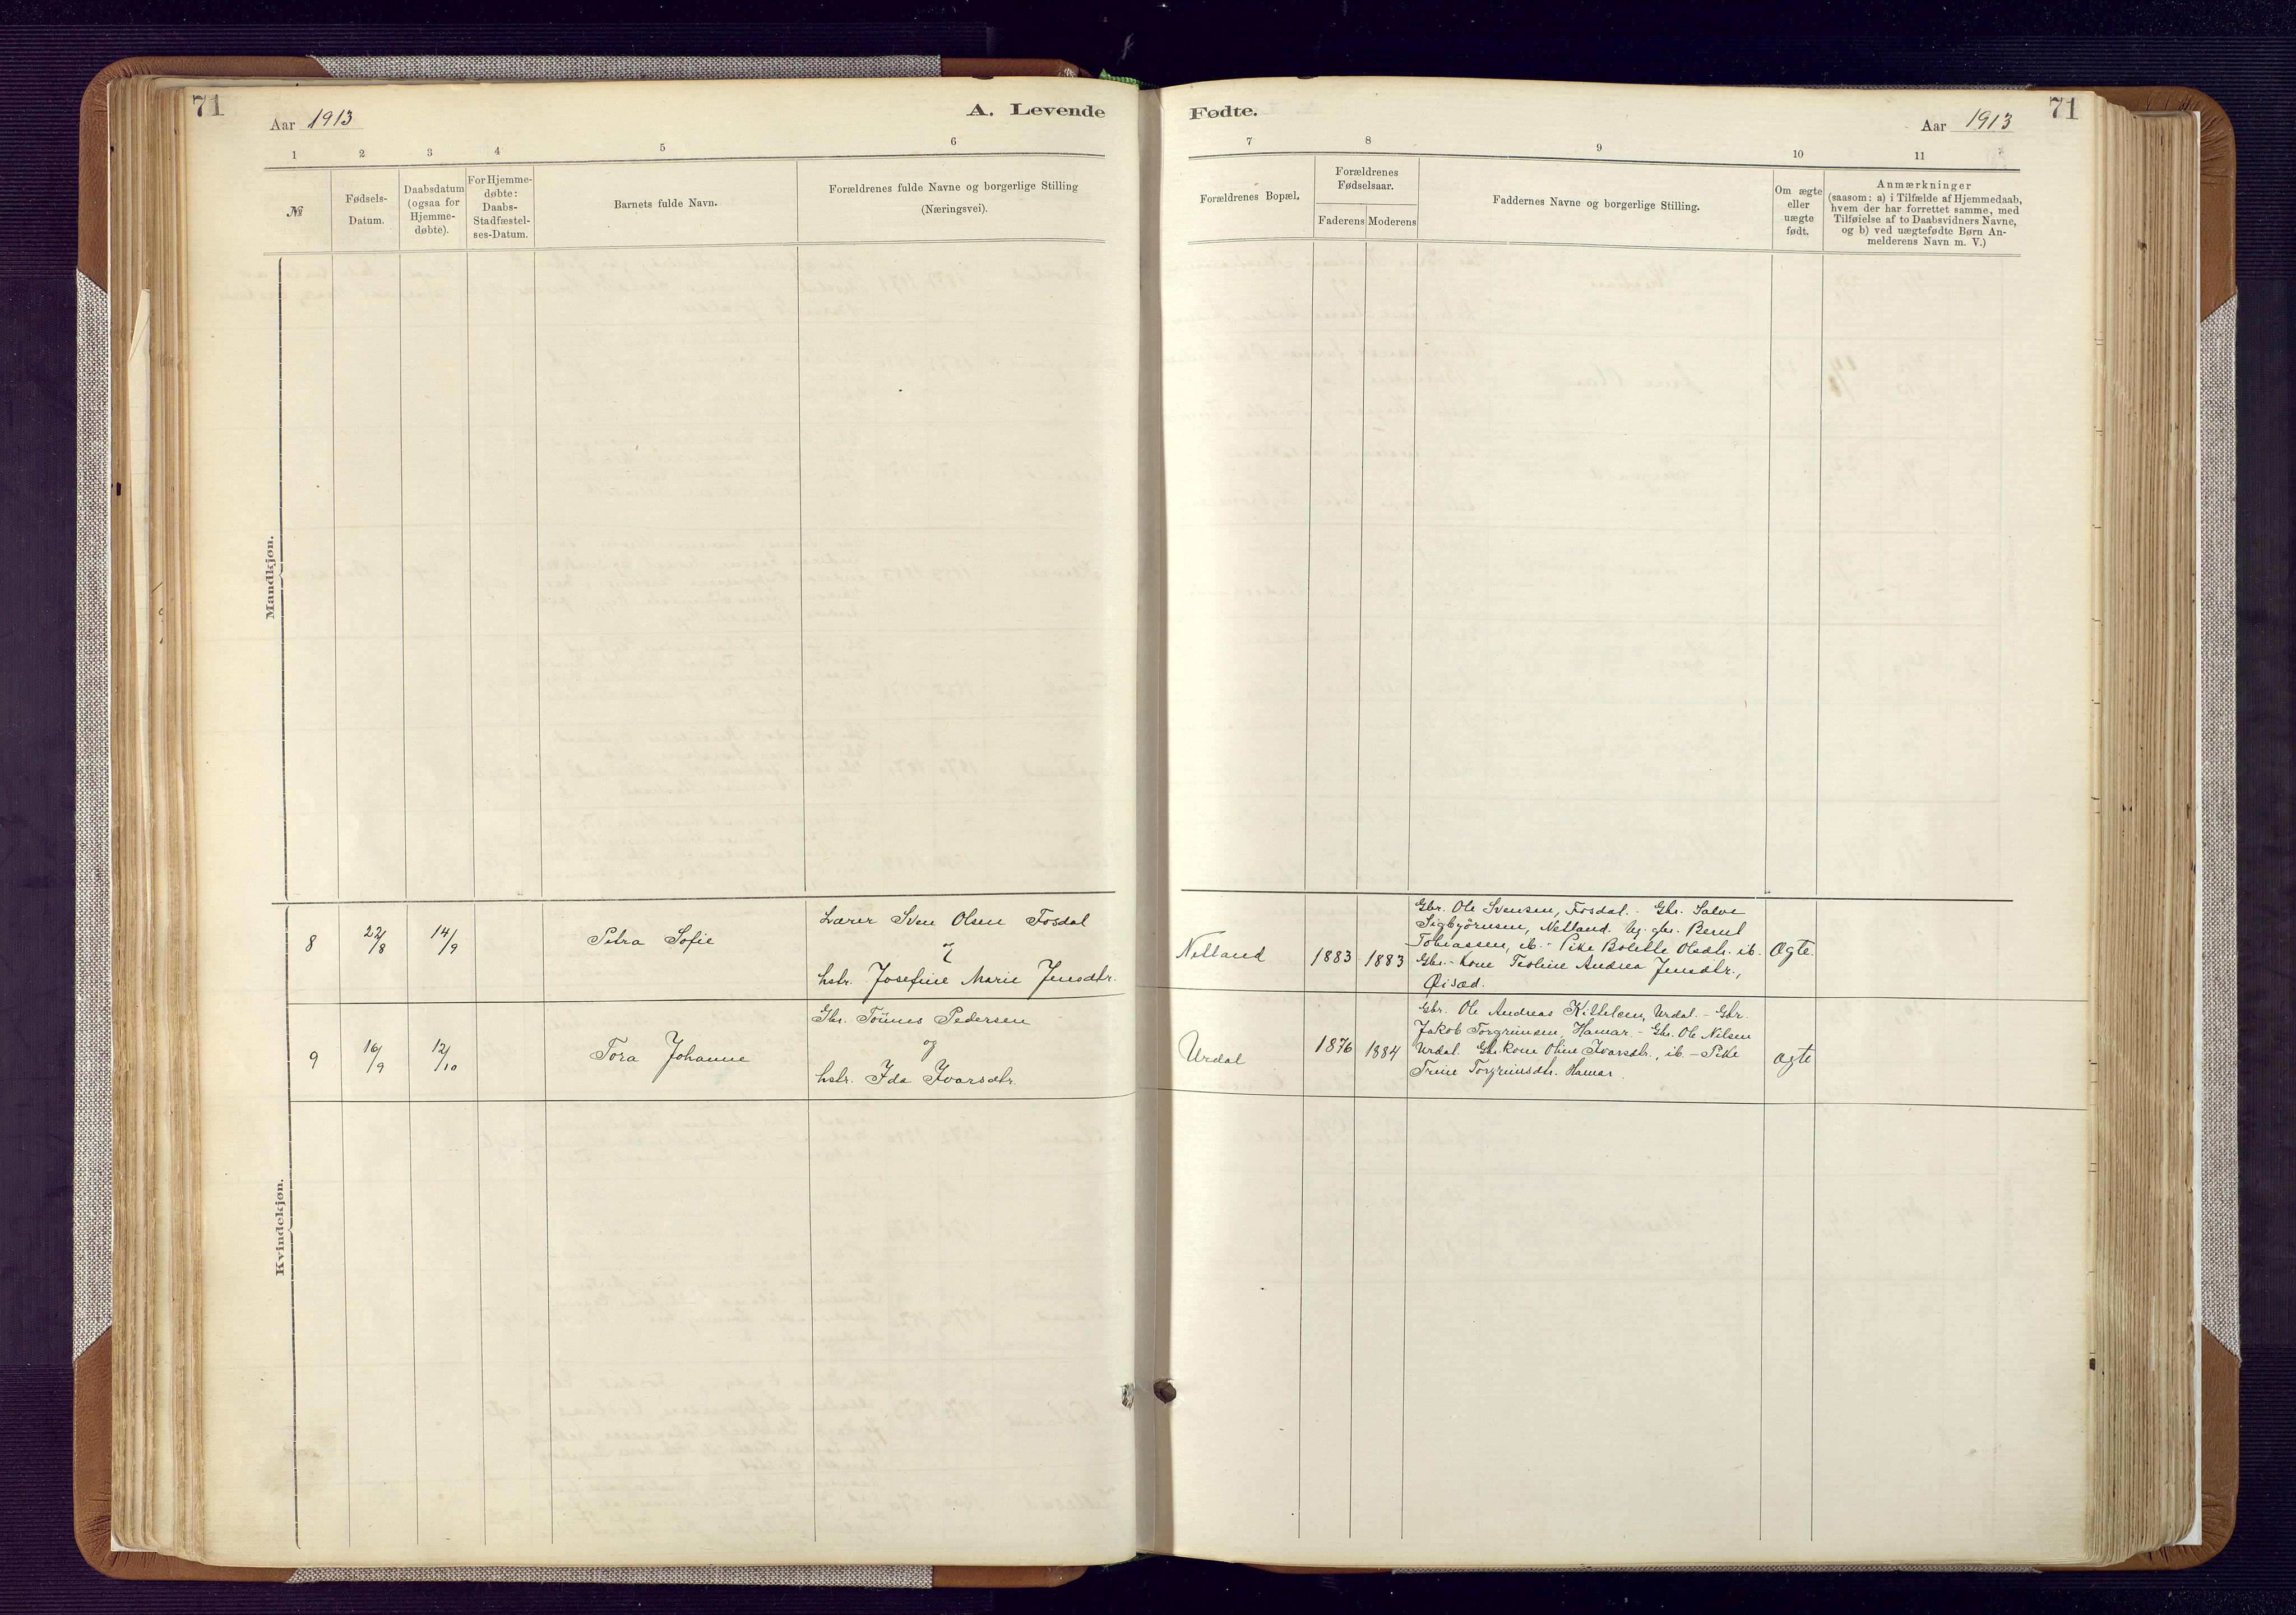 71
Aar 1913
A. Levende
1 2 3 4 5 6
№
Fødsels-
Datum.
Daabsdatum
(ogsaa for
Hjemme-
døbte).
For Hjemme-
døbte:
Daabs-
Stadfæstel-
ses-Datum.
Barnets fulde Navn.
Forældrenes fulde Navne og borgerlige Stilling
(Næringsvei).
Mandkjøn.
8
22/8
14/9
Petra Sofie
Lærer Sven Olsen Fosdal
og
hstr. Josefine Marie Jensdtr.
9
16/9
12/10
Tora Johanne
Gbr. Tönnes Pedersen
og
hstr. Ida Ivarsdtr.
Kvindekjøn.
Fødte.
Aar 1913
71
7 8 9 10 11
Forældrenes Bopæl.
Forældrenes
Fødselsaar.
Faderens Moderens
Faddernes Navne og borgerlige Stilling.
Om ægte
eller
uægte
født.
Anmærkninger
(saasom: a) i Tilfælde af Hjemmedaab,
hvem der har forrettet samme, med
Tilføielse af to Daabsvidners Navne,
og b) ved uægtefødte Børn An-
melderens Navn m. V.)
Netland
1883 1883
Gbr. Ole Svensen, Fosdal. - Gbr. Salve
Sigbjörnsen, Netland. Ug. gbr. Bernt
Tobiassen, ib. - Pike Bolette Olsdtr. ib.
Gbr.-Kone Teoline Andrea Jensdtr.,
Øisæd.
Ægte.
Urdal
1876 1884
Gbr. Ole Andreas Kittelsen, Urdal. - Gbr.
Jakob Torgrimsen, Hamar - Gbr. Ole Nilsen
Urdal. Gbr.kone Oline Ivarsdtr., ib. - Pike
Trine Torgrimsdtr. Hamar.
Ægte